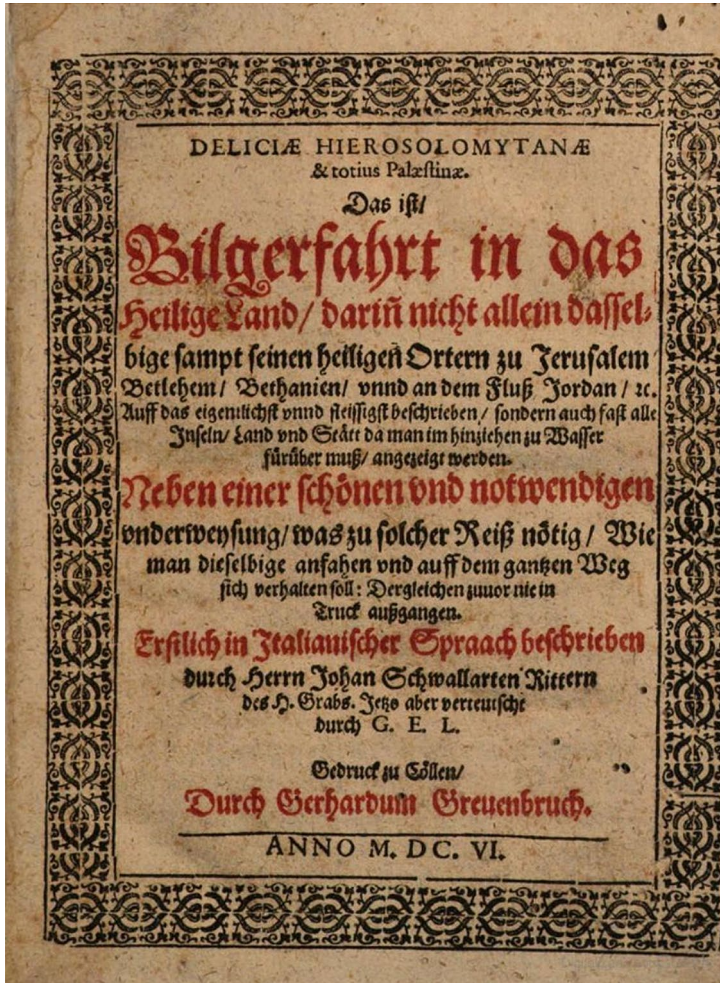 DELICIÆ HIEROSOLOMYTANÆ
& totius Palæstinæ.
Das ist/
Bilgerfahrt in das
Heilige Land/ dariñ nicht allein dassel-
bige sampt seinen heiligen Ortern zu Jerusalem
Betlehem/ Bethanien/ vnnd an dem Fluß Jordan/ ꝛc.
Auff das eigentlichst vnnd fleissigst beschrieben/ sondern auch fast alle
Inseln/ Land vnd Stätt da man im hinziehen zu Wasser
fürüber muß/ angezeigt werden.
Neben einer schönen vnd notwendigen
vnderweysung/ was zu solcher Reiß nötig/ Wie
man dieselbige anfahen vnd auff dem gantzen Weg
sich verhalten soll: Dergleichen zuuor nie in
Truck außgangen.
Erstlich in Italianischer Spraach beschrieben
durch Herrn Johan Schwallarten Rittern
des H. Grabs. Jetzo aber verteutscht
durch G. E. L.
Gedruckt zu Cöllen/
Durch Gerhardum Greuenbruch.
ANNO M. DC. VI.